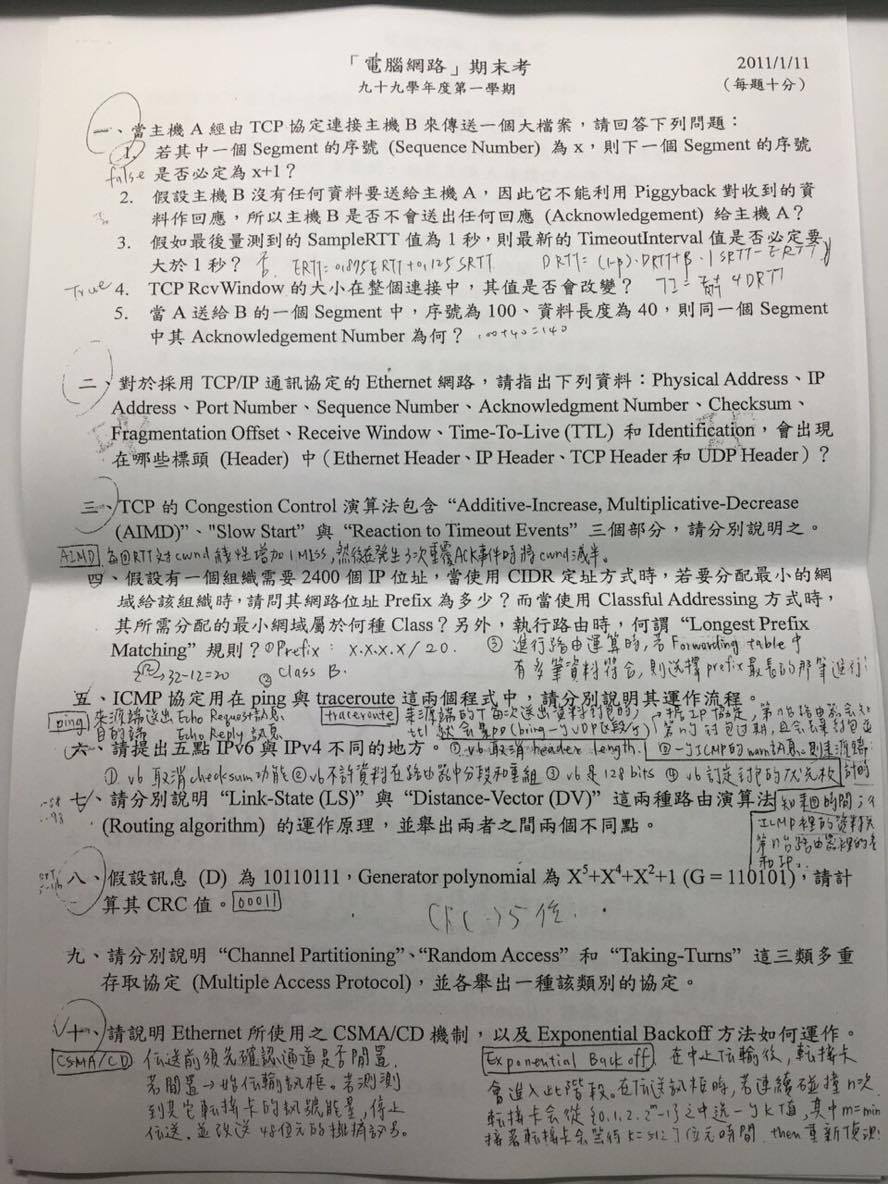 「電腦網路」期末考
2011/1/11
九十九學年度第一學期
(每題十分)
一、當主機 A 經由 TCP 協定連接主機 B 來傳送一個大檔案，請回答下列問題：
1. 若其中一個 Segment 的序號 (Sequence Number) 為 x，則下一個 Segment 的序號
false 是否必定為 x+1？
2. 假設主機 B 沒有任何資料要送給主機 A，因此它不能利用 Piggyback 對收到的資
料作回應，所以主機 B 是否不會送出任何回應 (Acknowledgement) 給主機 A？
3. 假如最後量測到的 SampleRTT 值為 1 秒，則最新的 TimeoutInterval 值是否必定要
大於 1 秒？ 否. ERTT= 0.875ERTT+0.125 SRTT DRTT= (1-β)·DRTT+β·|SRTT-ERTT|
True 4. TCP RcvWindow 的大小在整個連接中，其值是否會改變？ TI = 4DRTT
5. 當 A 送給 B 的一個 Segment 中，序號為 100、資料長度為 40，則同一個 Segment
中其 Acknowledgement Number 為何？ 100+40=140
二、對於採用 TCP/IP 通訊協定的 Ethernet 網路，請指出下列資料：Physical Address、IP
Address、Port Number、Sequence Number、Acknowledgment Number、Checksum、
Fragmentation Offset、Receive Window、Time-To-Live (TTL) 和 Identification，會出現
在哪些標頭 (Header) 中（Ethernet Header、IP Header、TCP Header 和 UDP Header）？
三、TCP 的 Congestion Control 演算法包含 “Additive-Increase, Multiplicative-Decrease
(AIMD)”、"Slow Start” 與 “Reaction to Timeout Events” 三個部分，請分別說明之。
AIMD 每回RTT對cwnd 線性增加1 MSS, 然後在發生3次重覆ACK事件時將cwnd減半。
四、假設有一個組織需要 2400 個 IP 位址，當使用 CIDR 定址方式時，若要分配最小的網
域給該組織時，請問其網路位址 Prefix 為多少？而當使用 Classful Addressing 方式時，
其所需分配的最小網域屬於何種 Class？另外，執行路由時，何謂 “Longest Prefix
Matching” 規則？ ① Prefix: x.x.x.x/20. ③ 進行路由運算時, 若 Forwarding table 中
32-12=20 ② Class B. 有多筆資料符合, 則選擇 prefix 最長的那筆進行
五、ICMP 協定用在 ping 與 traceroute 這兩個程式中，請分別說明其運作流程。
ping 來源端送出 Echo Request訊息 traceroute 來源端
目的端 Echo Reply 訊息
六、請提出五點 IPv6 與 IPv4 不同的地方。 v6 取消 header length.
① v6 取消 checksum 功能 ② v6不許資料在路由器中分段和重組 ③ v6 是 128 bits ④ v6
七、請分別說明 “Link-State (LS)” 與 “Distance-Vector (DV)” 這兩種路由演算法
(Routing algorithm) 的運作原理，並舉出兩者之間兩個不同點。
ICMP裡的資料
第n台路由器裡的名
和IP.
八、假設訊息 (D) 為 10110111，Generator polynomial 為 X⁵+X⁴+X²+1 (G = 110101)，請計
算其 CRC 值。 00011
CRC → 5 位.
九、請分別說明 “Channel Partitioning”、“Random Access” 和 “Taking-Turns” 這三類多重
存取協定 (Multiple Access Protocol)，並各舉出一種該類別的協定。
十、請說明 Ethernet 所使用之 CSMA/CD 機制，以及 Exponential Backoff 方法如何運作。
CSMA/CD 傳送前須先確認通道是否閒置.
若閒置→始傳輸訊框. 若測測
到其它転接卡的訊號能量, 停止
傳送. 並改送 48位元的擁擠訊号。
Exponential Back off. 在中止傳輸後, 転接卡
會進入此階段。在傳送訊框時, 若連續碰撞 n次.
転接卡會從 {0.1.2. 2^m-1} 之中選一个K值, 其中 m=min
接著転接卡會等待 K=512个位元時間. then 重新偵測